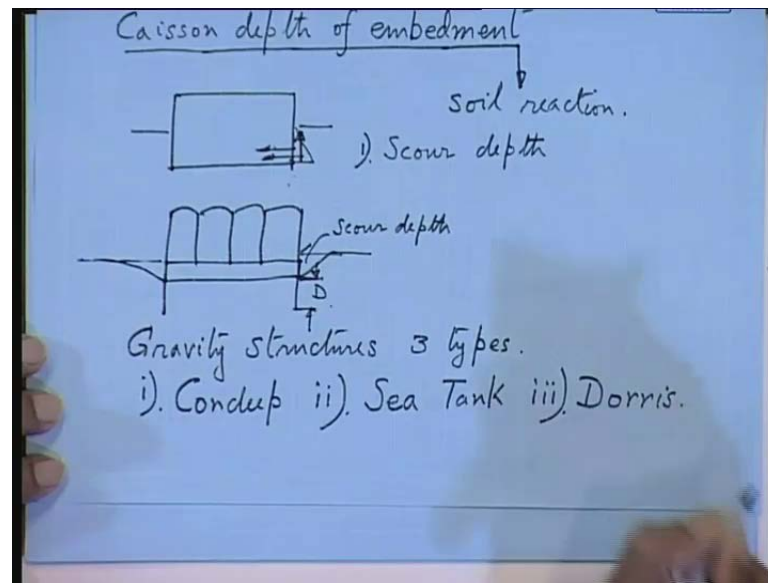 Caisson depth of embedment
soil reaction.
i). Scour depth
scour depth
D
Gravity structures 3 types.
i). Condup ii). Sea Tank iii). Dorris.